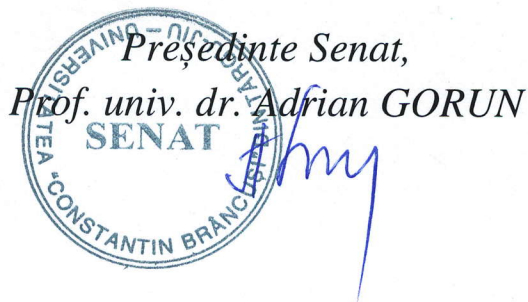 Președinte Senat,
Prof. univ. dr. Adrian GORUN
UNIVERSITATEA "CONSTANTIN BRÂNCUȘI" DIN TÂRGU-JIU
SENAT